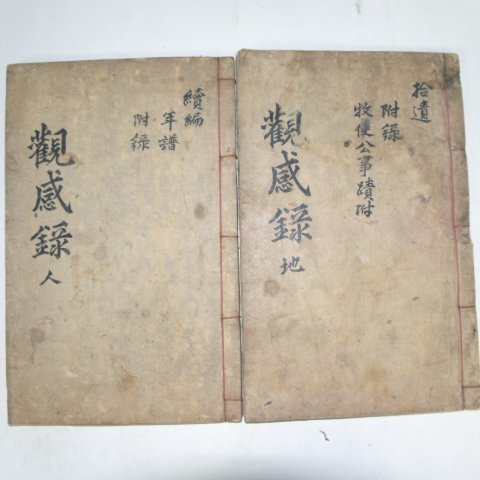 拾遺
附錄
牧使公事蹟附
觀感錄 地
續編
年譜
附錄
觀感錄 人